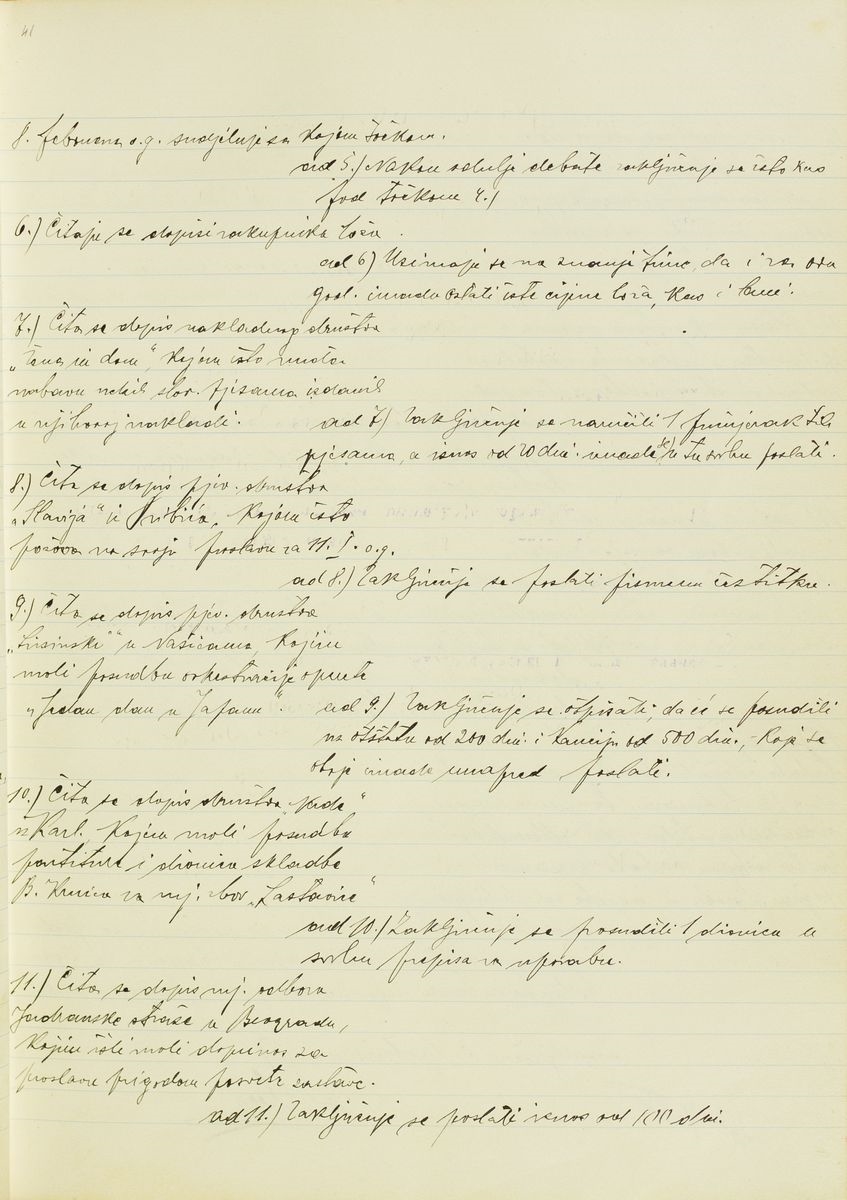 41
8. februara o.g. sudjeluje sa kojom točkom.
ad 5.) Nakon odulje debate zaključuje se isto kao
pod točkom 4.)
6.) Čitaju se dopisi zakupnika loža.
ad 6) Uzimaju se na znanje time, da i za ovu
god. imadu ostati iste cijene loža, kao i lane.
7.) Čita se dopis nakladnog društva
kojom isto nuđa
nabavu nekih slav. pjesama izdanih
u njihovoj nakladi.
ad 7) Zaključuje se naručiti 1 primjerak tih
pjesama, a iznos od 20 din. imade se u tu svrhu poslati.
8.) Čita se dopis pjev. društva
„Slavija" iz kojom isto
poziva na svoju proslavu za 11. I. o.g.
ad 8.) Zaključuje se poslati pismenu čestitku.
9.) Čita se dopis pjev. društva
„Lisinski" u Našicama, kojim
moli posudbu orkestracije operete
„Jedan dan u Japanu".
ad 9.) Zaključuje se otpisati, da će se posuditi
uz otštetu od 200 din. i kauciju od 500 din., koje se
oboje imade unapred poslati.
10.) Čita se dopis društva
iz Karl. kojim moli posudbu
partiture i dionica skladbe
za mj. zbor „Lastavice"
ad 10.) Zaključuje se posuditi 1 dionicu u
svrhu prepisa za uporabu.
11.) Čita se dopis mj. odbora
Jadranske straže u Beogradu,
kojim isti moli doprinos za
proslavu prigodom posvete zastave.
ad 11.) Zaključuje se poslati iznos od 100 din.